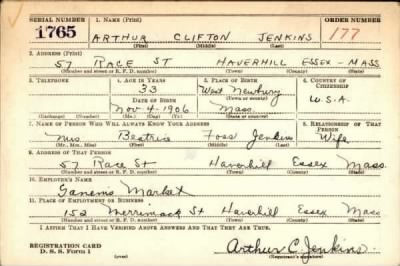 SERIAL NUMBER 1. NAME (Print) ORDER NUMBER
1765 ARTHUR CLIFTON JENKINS 177
(First) (Middle) (Last)
2. ADDRESS (Print)
57 RACE ST HAVERHILL ESSEX - MASS.
(Number and street or R. F. D. number) (Town) (County) (State)
3. TELEPHONE 4. AGE IN YEARS 5. PLACE OF BIRTH 6. COUNTRY OF CITIZENSHIP
33 West Newbury
DATE OF BIRTH (Town or county) U.S.A.
Nov-4-1906 Mass.
(Exchange) (Number) (Mo.) (Day) (Yr.) (State or country)
7. NAME OF PERSON WHO WILL ALWAYS KNOW YOUR ADDRESS 8. RELATIONSHIP OF THAT PERSON
Mrs Beatrice Foss Jenkins Wife
(Mr., Mrs., Miss) (First) (Middle) (Last)
9. ADDRESS OF THAT PERSON
57 Race St Haverhill Essex Mass
(Number and street or R. F. D. number) (Town) (County) (State)
10. EMPLOYER'S NAME
Market
11. PLACE OF EMPLOYMENT OR BUSINESS
152 Merrimack St Haverhill Essex Mass
(Number and street or R. F. D. number) (Town) (County) (State)
I AFFIRM THAT I HAVE VERIFIED ABOVE ANSWERS AND THAT THEY ARE TRUE.
REGISTRATION CARD
D. S. S. Form 1 Arthur C. Jenkins